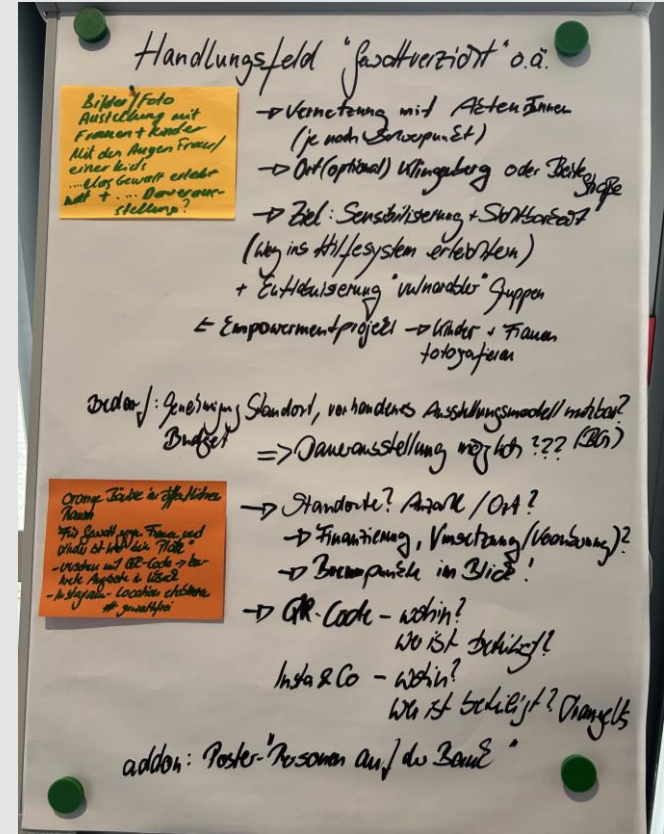 Handlungsfeld "Gewaltverzicht" o.ä.
Bilder/Foto
Austellung mit
Frauen + Kinder
Mit den Augen Frau/
einer Kids
...das Gewalt erlebt
hat + ... Daueraus-
stellung?
→ Vernetzung mit AkteurInnen
(je nach Schwerpunkt)
→ Ort (optional) Klingenberg oder Breite
Straße
→ Ziel: Sensibilisierung + Sichtbarkeit
(Weg ins Hilfesystem erleichtern)
+ "vulnerabler" Gruppen
Empowermentprojekt → Kinder + Frauen
fotografieren
Bedarf: Genehmigung Standort, vorhandenes Ausstellungsmodell nutzbar?
Budget
=> Dauerausstellung möglich???
Orange Bänke im öffentlichen
Raum
"Für Gewalt gegen Frauen und
Kinder ist hier kein Platz"
- versehen mit QR-Code →
Angebote in Lübeck
- Instagram-Location
# gewaltfrei
→ Standorte? Anzahl / Ort?
→ Finanzierung, Umsetzung /
→ Brennpunkte im Blick!
→ QR-Code - wohin?
Wer ist beteiligt?
Insta & Co - wohin?
Wer ist beteiligt?
addon: Poster-"Personen auf der Bank"